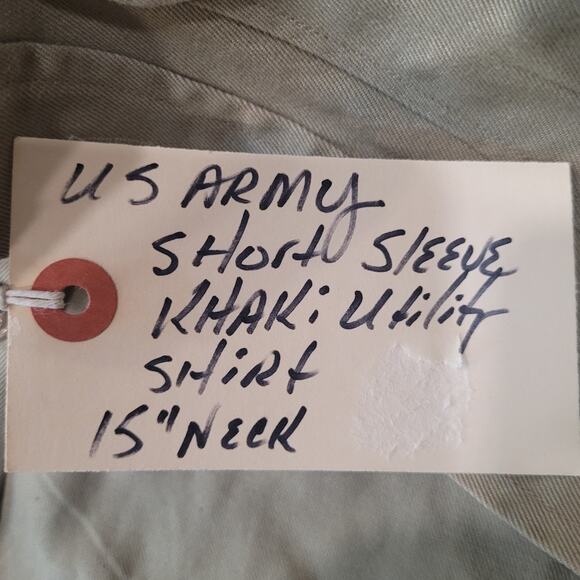 US ARMY
SHort SLEEVE
KHAKi Utility
SHiRt
15" NECK